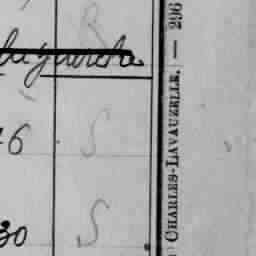 R
la gauche
6 S
30 S
CHARLES-LAVAUZELLE. — 296